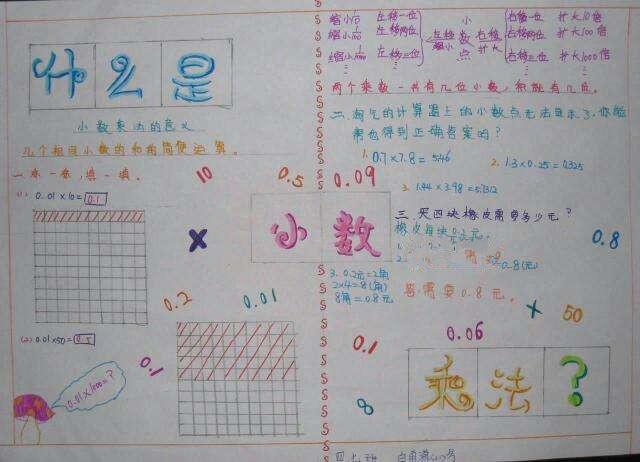 什么是
小数乘法的意义
几个相同小数的和的简便运算。
一、涂一涂,填一填。
(1) 0.01×10=0.1
(2) 0.01×50=0.5
0.01×100=?
×
10
0.5
0.09
0.2
0.01
0.1
小数
缩小1/10 左移一位
缩小1/100 左移两位
缩小1/1000 左移三位
左移 缩小
小数
右移 扩大
右移一位 扩大10倍
右移两位 扩大100倍
右移三位 扩大1000倍
两个乘数一共有几位小数,积就有几位。
二、淘气的计算器上的小数点无法显示了,你能
帮他得到正确答案吗?
1. 0.7×7.8=546
2. 1.3×0.25=0.325
3. 1.44×3.98=5.7312
三、买四块橡皮需要多少元?
橡皮每块0.2元.
1.
2.
0.8(元)
3. 0.2元=2角
2×4=8(角)
8角=0.8元
答:需要0.8元。
0.8
+
50
0.1
0.06
8
乘法?